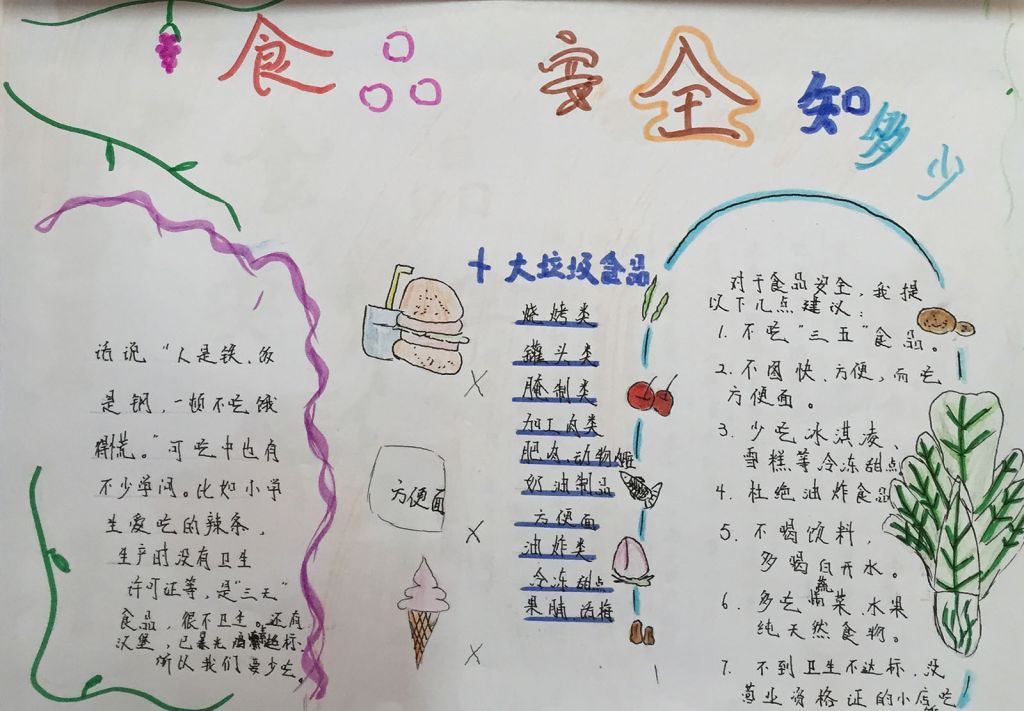 食品安全知多少
话说“人是铁、饭
是钢，一顿不吃饿
得慌。”可吃中也有
不少学问。比如小学
生爱吃的辣条，
生产时没有卫生
许可证等，是“三无”
食品，很不卫生。还有
汉堡，已暴光超标，
所以我们要少吃。
方便面
十大垃圾食品
烧烤类
罐头类
腌制类
加工肉类
肥肉、动物
奶油制品
方便面
油炸类
冷冻甜点
果脯话梅
对于食品安全，我提
以下几点建议：
1. 不吃“三五”食品。
2. 不图快、方便，而吃
方便面。
3. 少吃冰淇凌、
雪糕等冷冻甜点
4. 杜绝油炸食品
5. 不喝饮料，
多喝白开水。
6. 多吃蔬菜、水果
纯天然食物。
7. 不到卫生不达标，没
营业资格证的小店吃